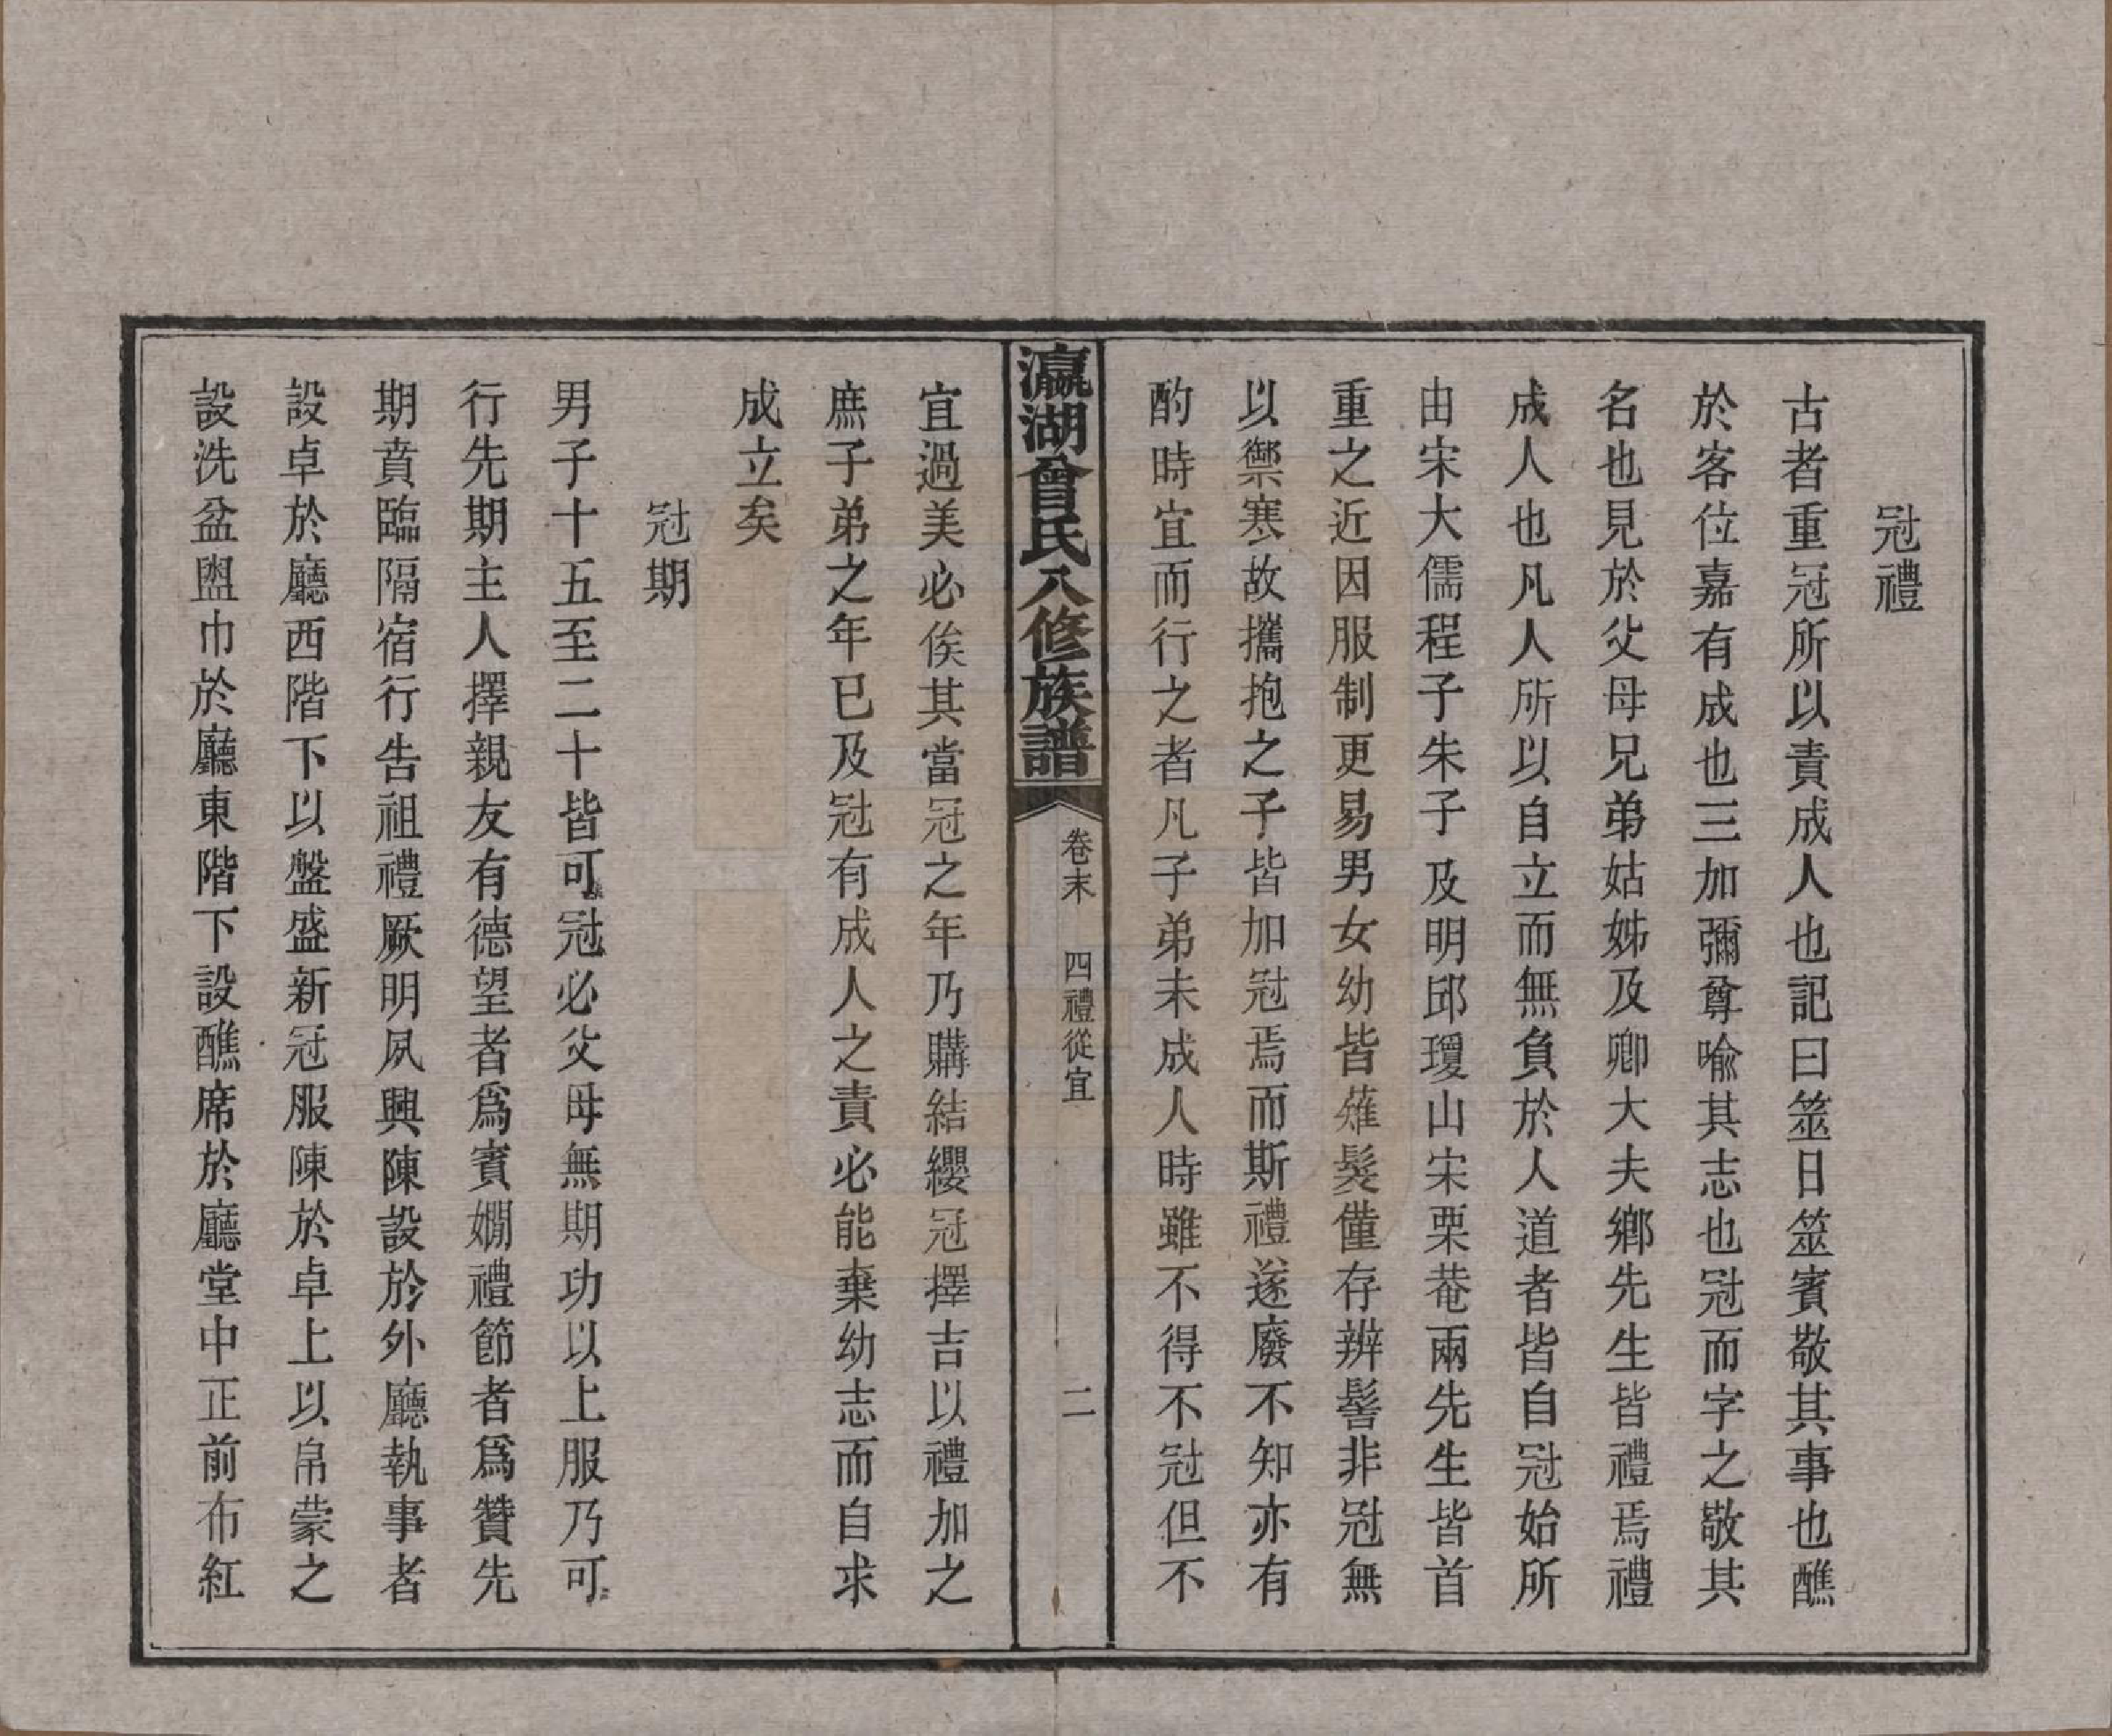 冠禮
古者重冠所以責成人也記曰筮日筮賓敬其事也醮
於客位嘉有成也三加彌尊喻其志也冠而字之敬其
名也見於父母兄弟姑姊及卿大夫鄉先生皆禮焉禮
成人也凡人所以自立而無負於人道者皆自冠始所
由宋大儒程子朱子及明邱瓊山宋栗菴兩先生皆首
重之近因服制更易男女幼皆薙髮僅存辨髻非冠無
以禦寒故攜抱之子皆加冠焉而斯禮遂廢不知亦有
酌時宜而行之者凡子弟未成人時雖不得不冠但不
瀛湖曾氏八修族譜
卷末 四禮從宜
二
宜過美必俟其當冠之年乃購結纓冠擇吉以禮加之
庶子弟之年已及冠有成人之責必能棄幼志而自求
成立矣
冠期
男子十五至二十皆可冠必父母無期功以上服乃可
行先期主人擇親友有德望者爲賓嫻禮節者爲贊先
期賁臨隔宿行告祖禮厥明夙興陳設於外廳執事者
設卓於廳西階下以盤盛新冠服陳於卓上以帛蒙之
設洗盆盥巾於廳東階下設醮席於廳堂中正前布紅